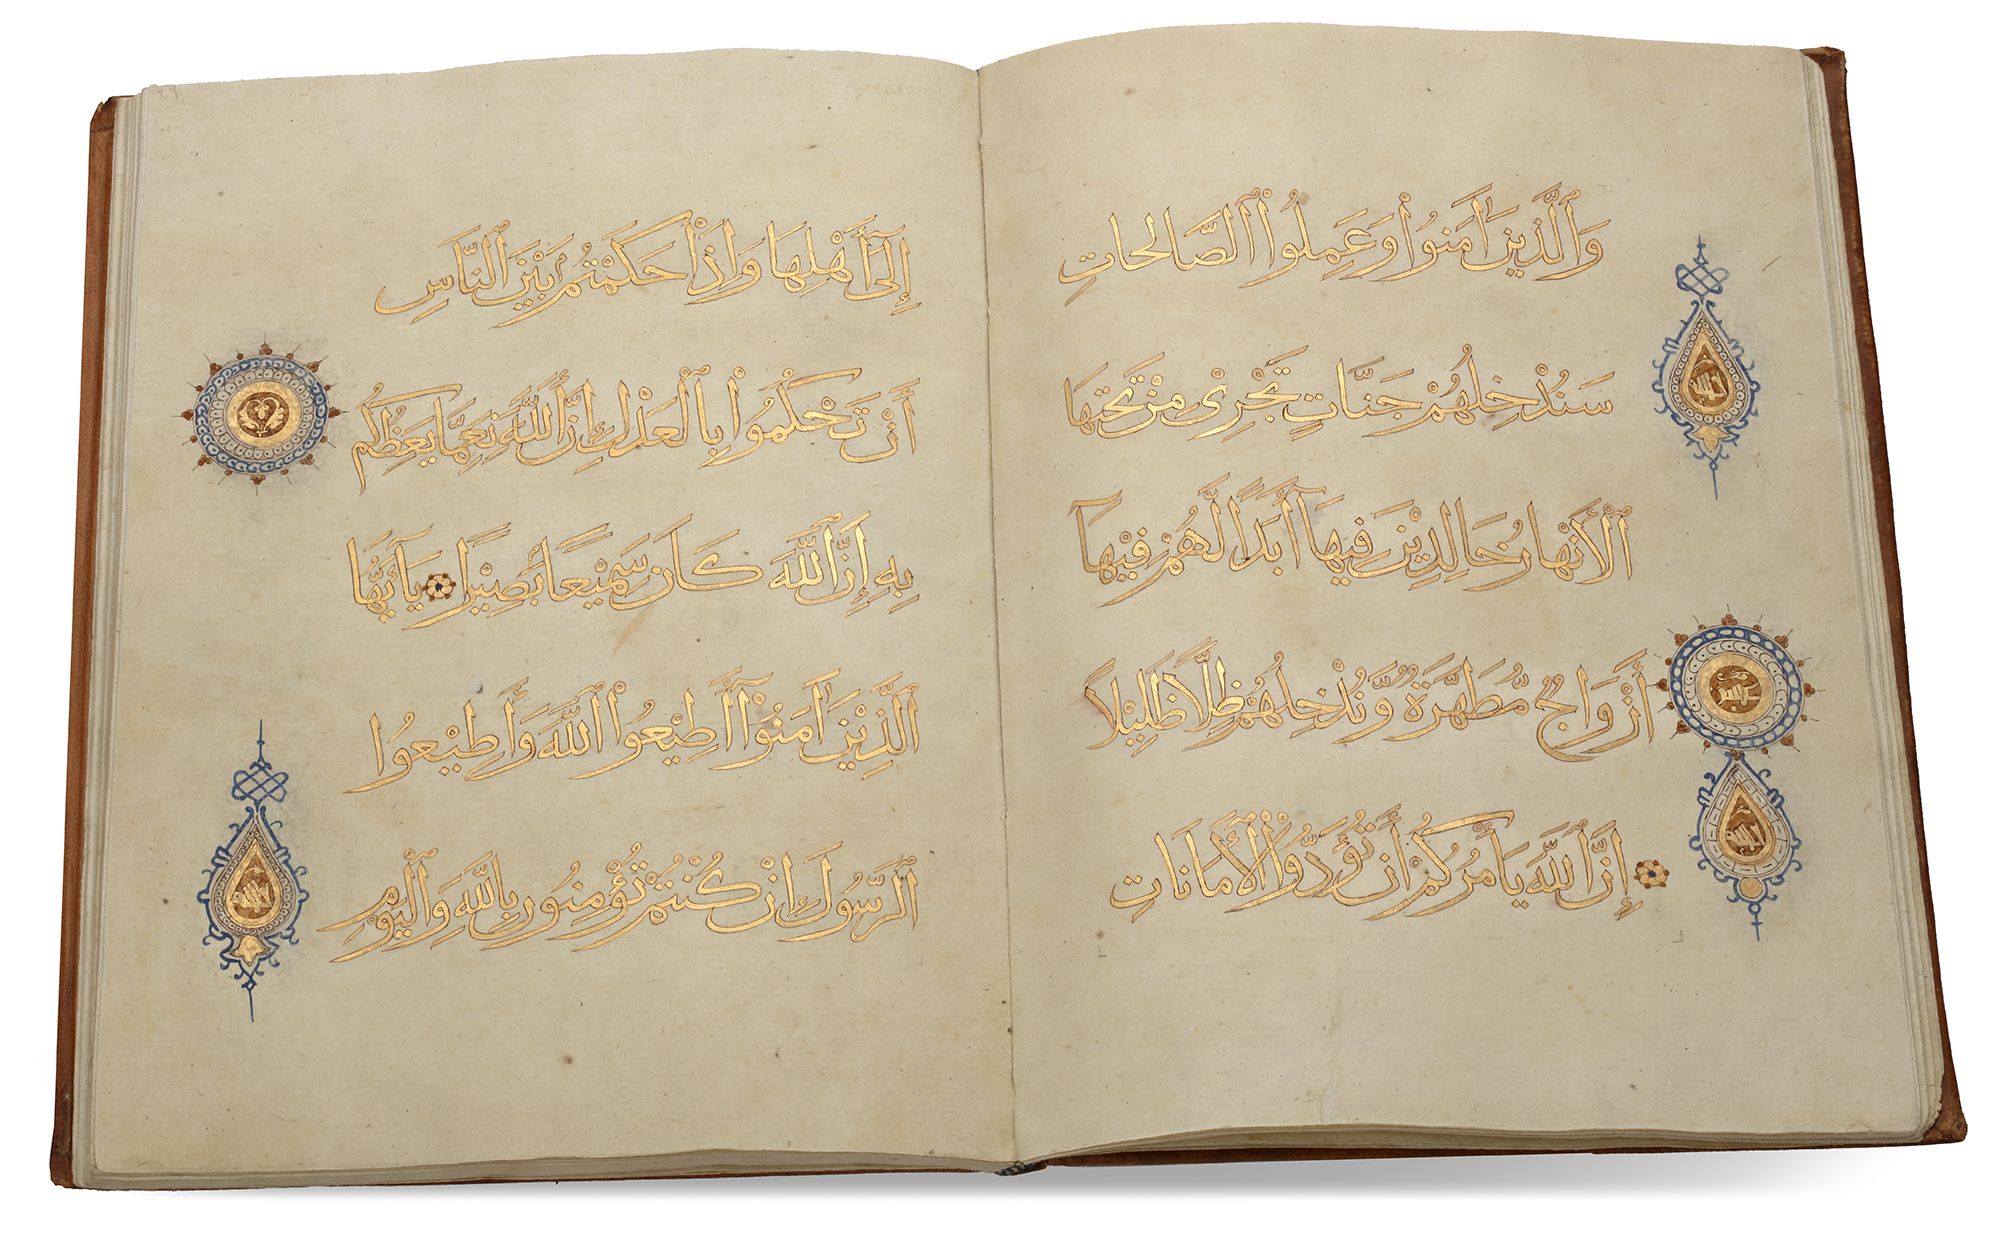 وَالَّذِينَ آمَنُوا وَعَمِلُوا الصَّالِحَاتِ
سَنُدْخِلُهُمْ جَنَّاتٍ تَجْرِي مِنْ تَحْتِهَا
الْأَنْهَارُ خَالِدِينَ فِيهَا أَبَدًا لَهُمْ فِيهَا
أَزْوَاجٌ مُطَهَّرَةٌ وَنُدْخِلُهُمْ ظِلًّا ظَلِيلًا
إِنَّ اللَّهَ يَأْمُرُكُمْ أَنْ تُؤَدُّوا الْأَمَانَاتِ
إِلَى أَهْلِهَا وَإِذَا حَكَمْتُمْ بَيْنَ النَّاسِ
أَنْ تَحْكُمُوا بِالْعَدْلِ إِنَّ اللَّهَ نِعِمَّا يَعِظُكُمْ
بِهِ إِنَّ اللَّهَ كَانَ سَمِيعًا بَصِيرًا يَا أَيُّهَا
الَّذِينَ آمَنُوا أَطِيعُوا اللَّهَ وَأَطِيعُوا
الرَّسُولَ إِنْ كُنْتُمْ تُؤْمِنُونَ بِاللَّهِ وَالْيَوْمِ